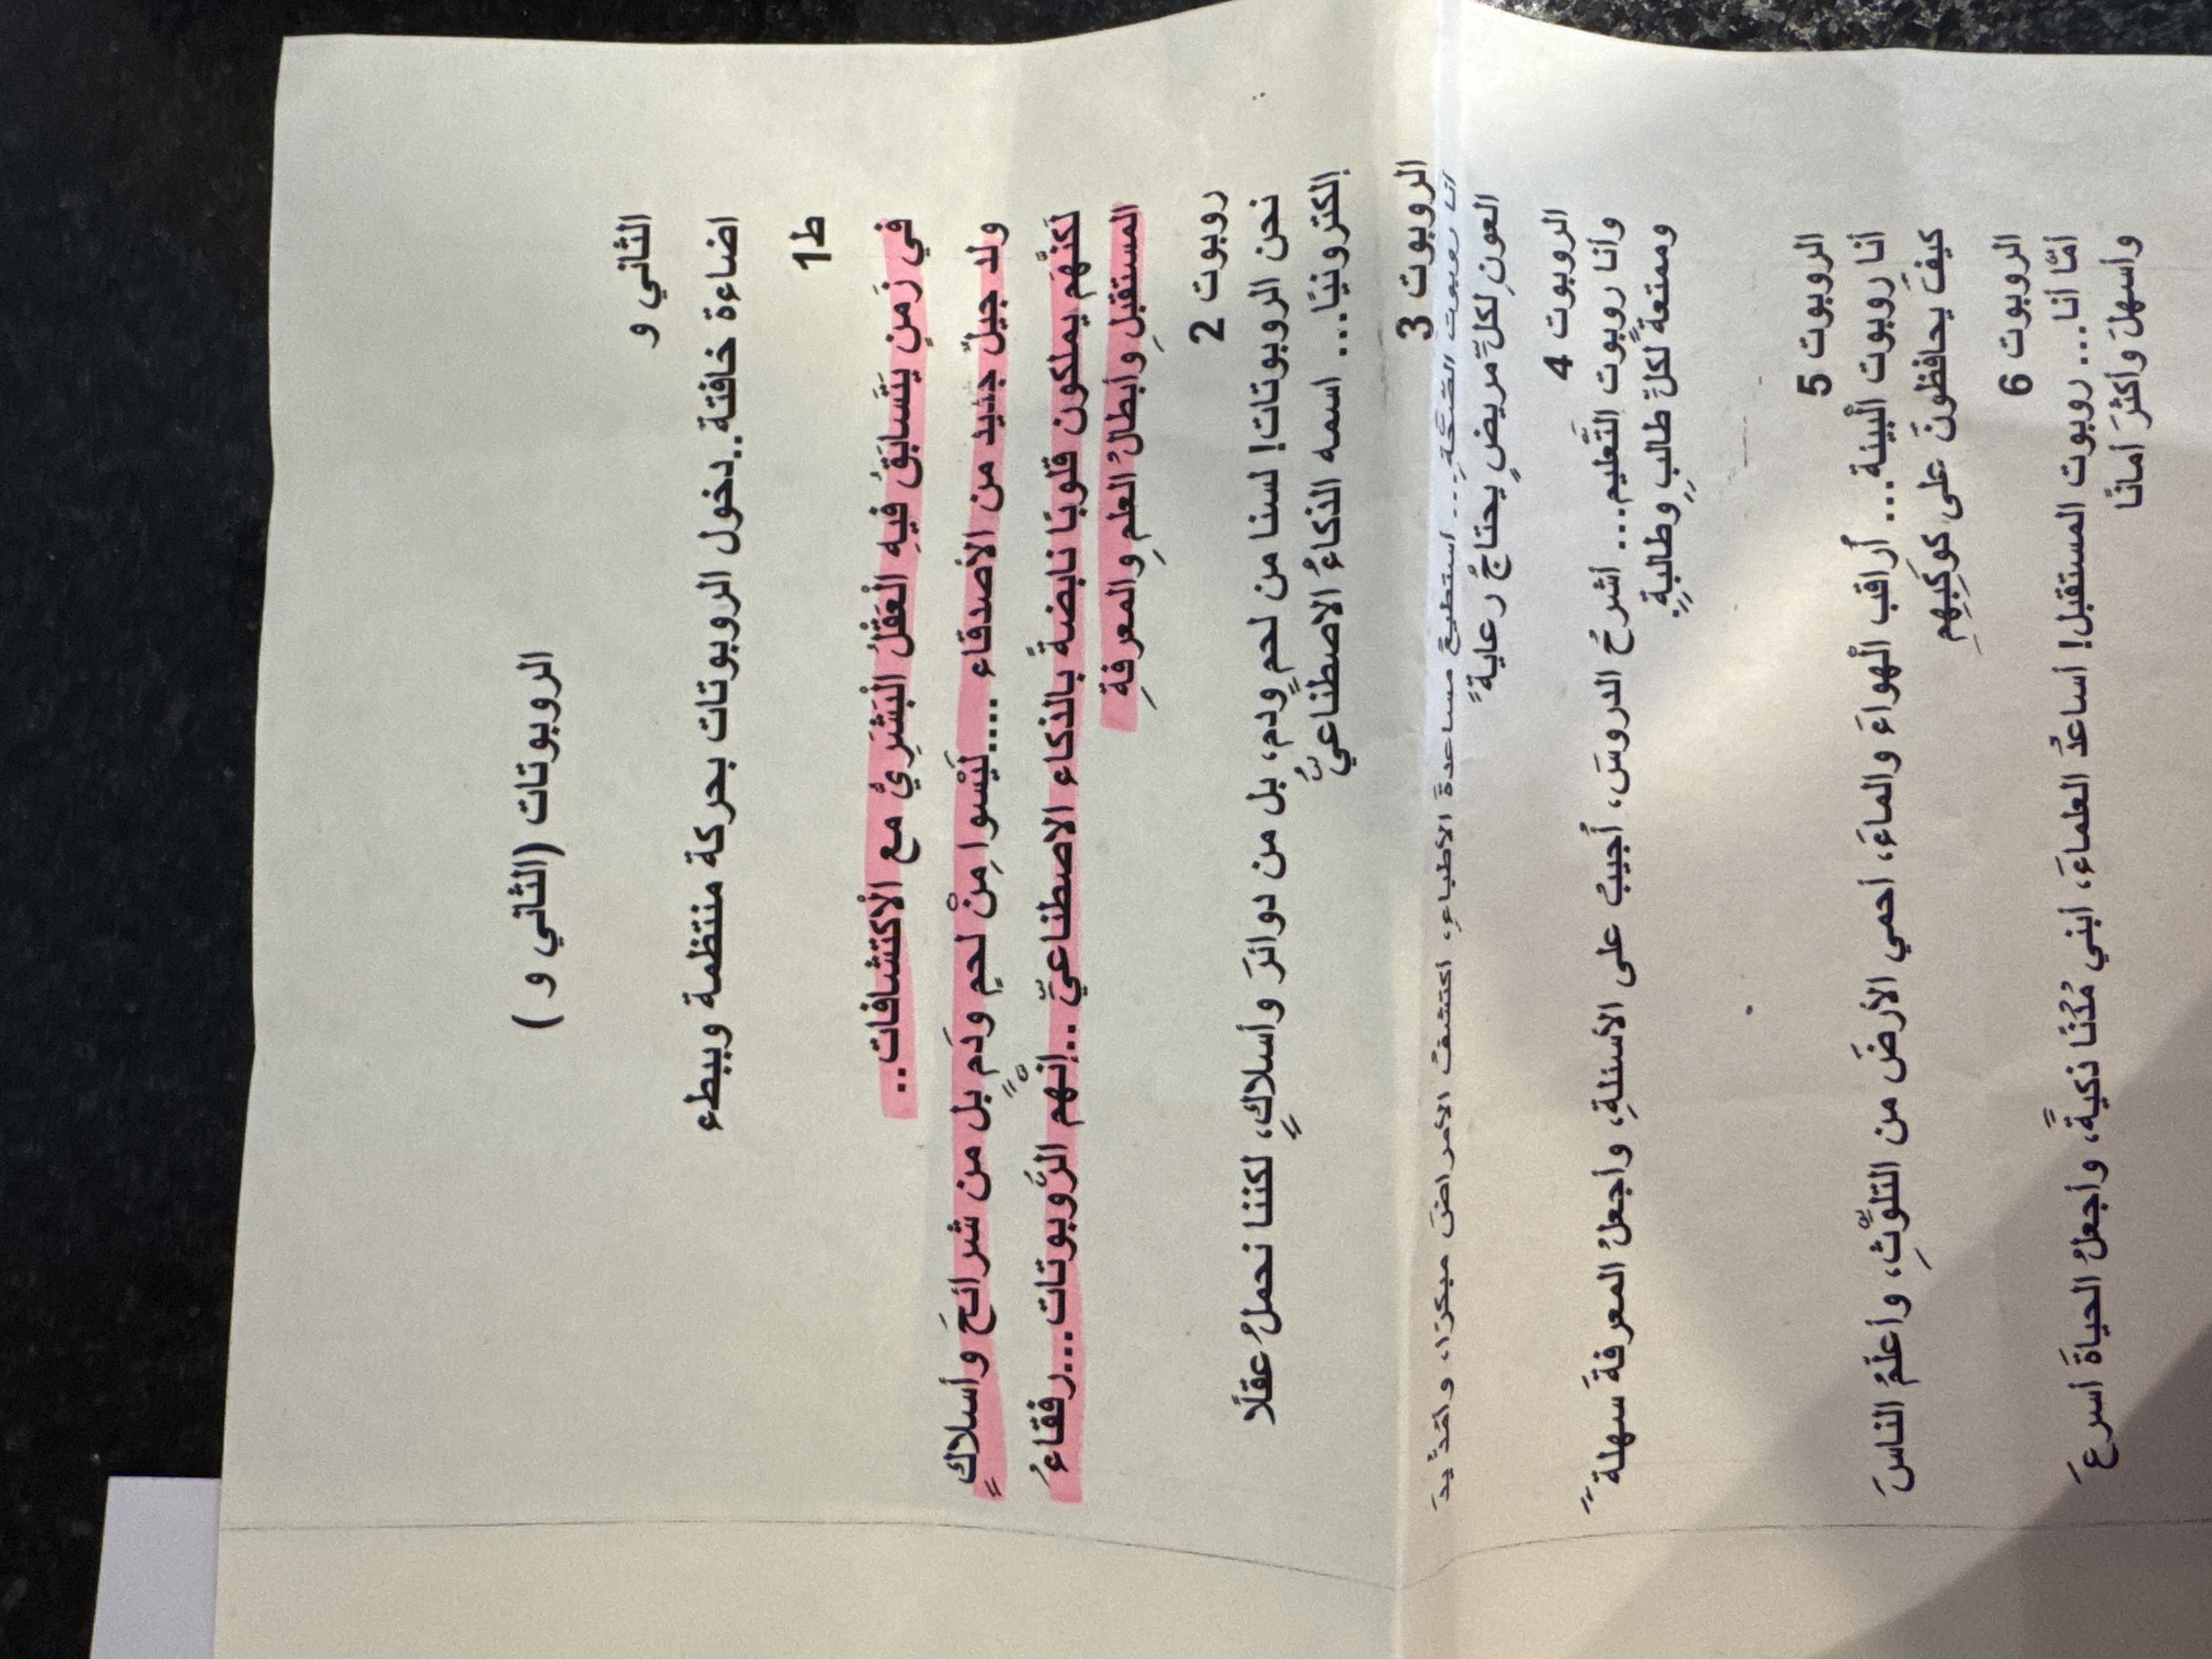 الروبوتات (الثاني و )
الثاني و
اضاءة خافتة..دخول الروبوتات بحركة منتظمة وببطء
ط1
في زَمَنٍ يَتَسابَقُ فيهِ الْعَقْلُ الْبَشَرِيُّ مع الْاكتشافات..
ولد جيلٌ جديد من الأصدقاء ....لَيْسوا مِنْ لَحمٍ ودَمٍ بل من شرائحَ وأسلاكٍ
لكنَّهم يملكون قلوبًا نابضةً بالذكاء الاصطناعيِّ ..إنَّهم الرُّوبوتات...رفقاءُ
المستقبلِ وأبطالُ العلمِ والمعرفةِ
روبوت 2
نحن الروبوتات! لسنا من لحمٍ ودم، بل من دوائرَ وأسلاكٍ، لكننا نحملُ عقلًا
إلكترونيًا... اسمه الذكاءُ الاصطناعيُّ
الروبوت 3
أنا روبوت الصحّةِ... أستطيع مساعدةَ الأطباءِ، أكتشفُ الأمراضَ مبكرًا، وأمدُّ يدَ
العونِ لكلِّ مريضٍ يحتاجُ رعايةً
الروبوت 4
وأنا روبوت التَّعليم... أشرحُ الدروسَ، أُجيبُ على الأسئلةِ، وأجعلُ المعرفةَ سهلةً
وممتعةً لكلِّ طالبٍ وطالبةٍ
الروبوت 5
أنا روبوت الْبيئة... أُراقب الْهواءَ والماءَ، أحمي الأرضَ من التلوُّثِ، وأعلّمُ الناسَ
كيفَ يحافظونَ على كوكبِهِم
الروبوت 6
أمّا أنا... روبوت المستقبل! أساعدُ العلماءَ، أبني مُدُنًا ذكيةً، وأجعلُ الحياةَ أسرعَ
وأسهلَ وأكثرَ أمانًا